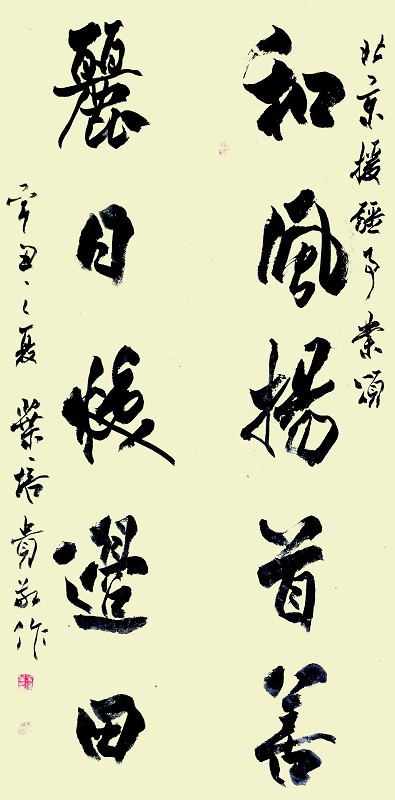 北京援疆事業頌
和風揚首善
麗日煖邊田
辛丑之夏葉培貴敬作